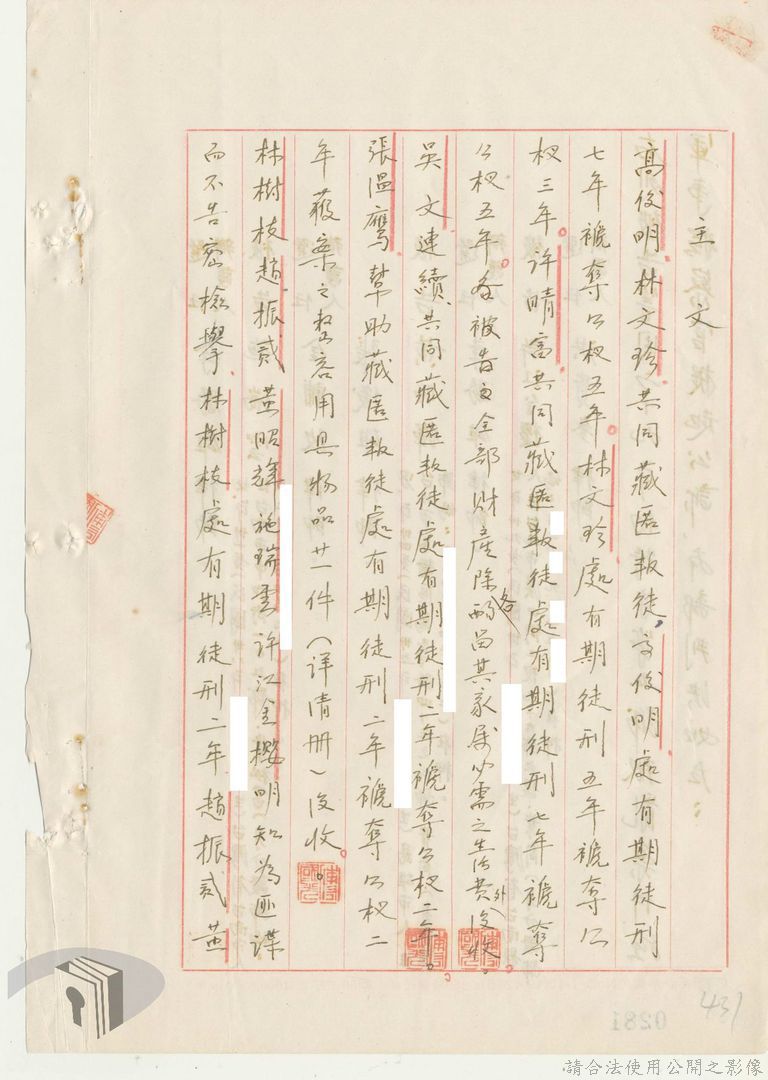 主文
高俊明、林文珍共同藏匿叛徒,高俊明處有期徒刑
七年褫奪公权五年。林文珍處有期徒刑五年褫奪公
权三年。許晴富共同藏匿叛徒處有期徒刑七年褫奪
公权五年。各被告之全部財產除各酌留其家屬必需之生活費外沒收。
吳文連續共同藏匿叛徒處有期徒刑二年褫奪公权二年。
張温鷹幫助藏匿叛徒處有期徒刑二年褫奪公权二
年獲案之整容用具物品廿一件(詳清冊)沒收。
林樹枝、趙振貳、黃昭輝、施瑞雲、許江金櫻明知為匪諜
而不告密檢舉,林樹枝處有期徒刑二年,趙振貳、黃
0281
431
請合法使用公開之影像